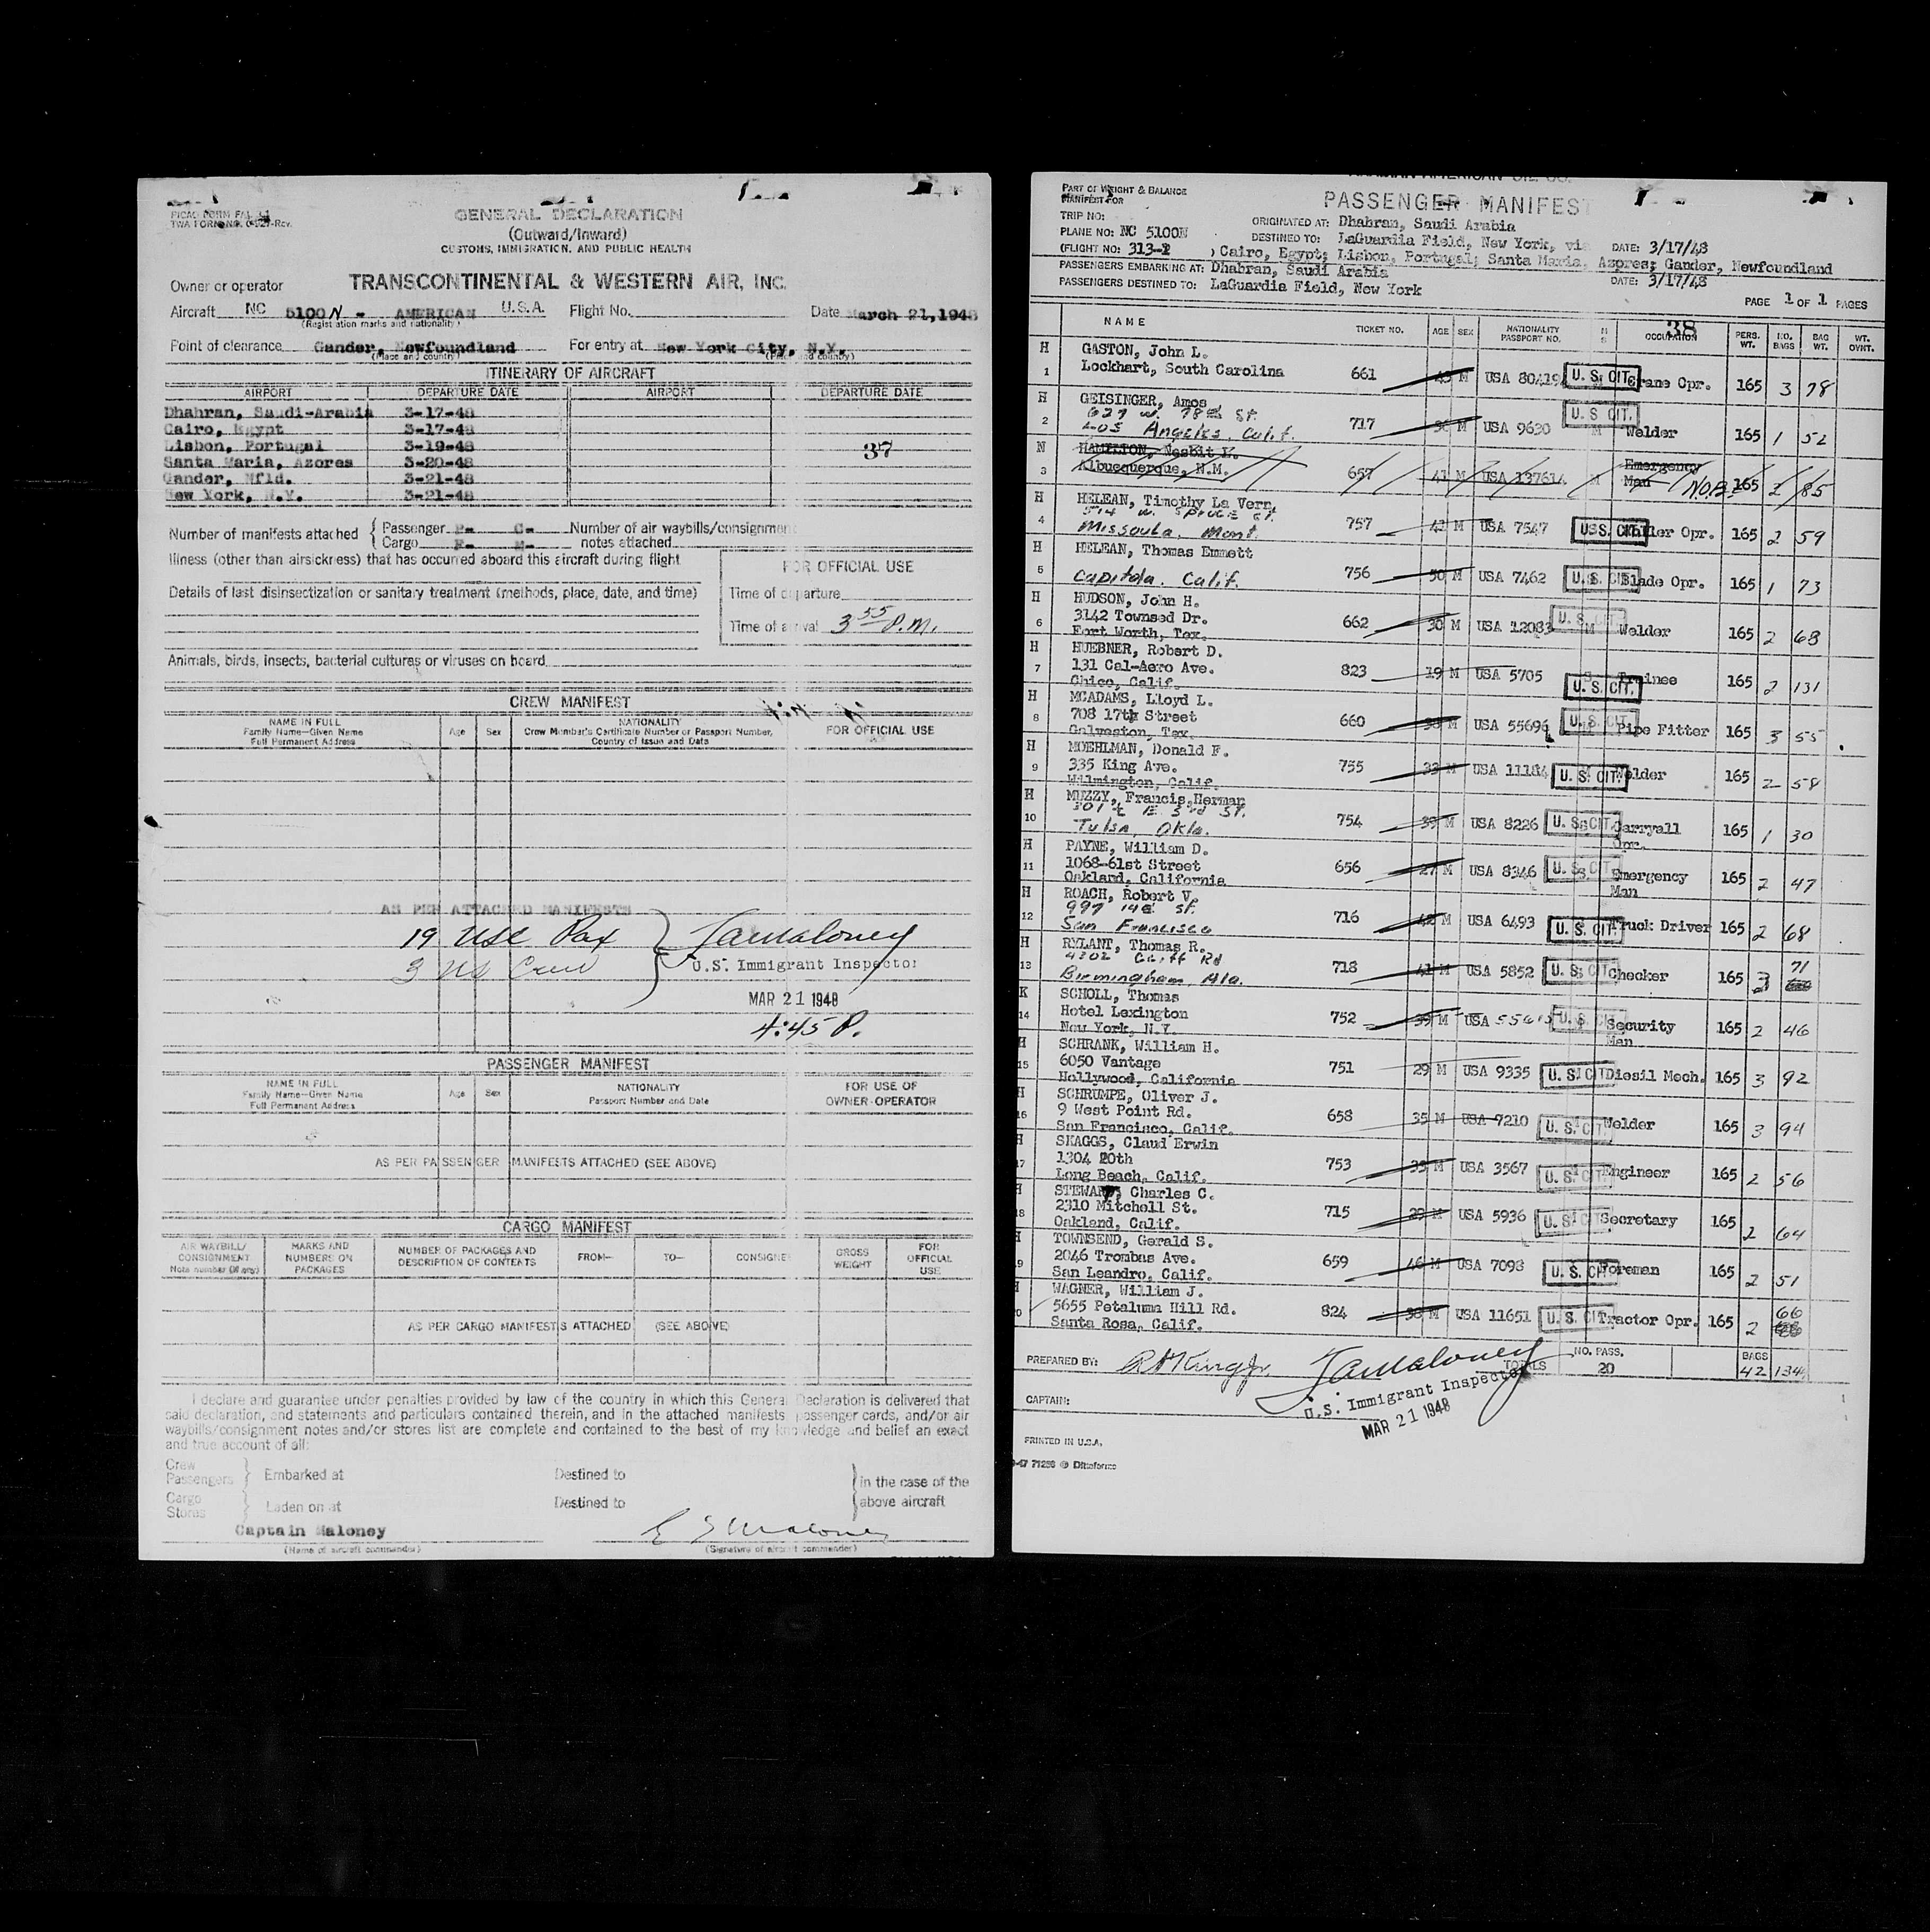 PICAO FORM FAL
TWA FORM NO. O-127-Rev.
GENERAL DECLARATION
(Outward/Inward)
CUSTOMS, IMMIGRATION, AND PUBLIC HEALTH
Owner or operator TRANSCONTINENTAL & WESTERN AIR, INC.
Aircraft NC 5100N - AMERICAN U.S.A. Flight No. Date March 21, 1948
(Registration marks and nationality)
Point of clearance Gander, Newfoundland For entry at New York City, N.Y.
(Place and country) (Place and country)
ITINERARY OF AIRCRAFT
AIRPORT DEPARTURE DATE AIRPORT DEPARTURE DATE
Dhahran, Saudi-Arabia 3-17-48
Cairo, Egypt 3-17-48
Lisbon, Portugal 3-19-48 37
Santa Maria, Azores 3-20-48
Gander, Nfld. 3-21-48
New York, N.Y. 3-21-48
Number of manifests attached { Passenger P- C- Number of air waybills/consignment
Cargo F- M- notes attached
Illness (other than airsickness) that has occurred aboard this aircraft during flight
FOR OFFICIAL USE
Details of last disinsectization or sanitary treatment (methods, place, date, and time)
Time of departure
Time of arrival 3 55 P.M.
Animals, birds, insects, bacterial cultures or viruses on board
CREW MANIFEST
NAME IN FULL
Family Name—Given Name
Full Permanent Address
Age Sex
NATIONALITY
Crew Member's Certificate Number or Passport Number,
Country of Issue and Date
FOR OFFICIAL USE
AS PER ATTACHED MANIFESTS
19 USC Pax
3 US Crew
U.S. Immigrant Inspector
MAR 21 1948
4:45 P.
PASSENGER MANIFEST
NAME IN FULL
Family Name—Given Name
Full Permanent Address
Age Sex
NATIONALITY
Passport Number and Date
FOR USE OF
OWNER-OPERATOR
AS PER PASSENGER MANIFESTS ATTACHED (SEE ABOVE)
CARGO MANIFEST
AIR WAYBILL/
CONSIGNMENT
Note number (if any)
MARKS AND
NUMBERS ON
PACKAGES
NUMBER OF PACKAGES AND
DESCRIPTION OF CONTENTS
FROM— TO— CONSIGNEE
GROSS
WEIGHT
FOR
OFFICIAL
USE
AS PER CARGO MANIFESTS ATTACHED (SEE ABOVE)
I declare and guarantee under penalties provided by law of the country in which this General Declaration is delivered that
said declaration, and statements and particulars contained therein, and in the attached manifests passenger cards, and/or air
waybills/consignment notes and/or stores list are complete and contained to the best of my knowledge and belief an exact
and true account of all:
Crew
Passengers } Embarked at Destined to
in the case of the
Cargo
Stores } Laden on at Destined to above aircraft
Captain Maloney
(Name of aircraft commander) (Signature of aircraft commander)
PART OF WEIGHT & BALANCE
MANIFEST FOR
PASSENGER MANIFEST
TRIP NO: ORIGINATED AT: Dhahran, Saudi Arabia
PLANE NO: NC 5100N DESTINED TO: LaGuardia Field, New York, via DATE: 3/17/48
(FLIGHT NO: 313-2 ) Cairo, Egypt; Lisbon, Portugal; Santa Maria, Azores; Gander, Newfoundland
PASSENGERS EMBARKING AT: Dhahran, Saudi Arabia DATE: 3/17/48
PASSENGERS DESTINED TO: LaGuardia Field, New York
PAGE 1 OF 1 PAGES
38
NAME TICKET NO. AGE SEX NATIONALITY PASSPORT NO. M S OCCUPATION PERS. WT. NO. BAGS BAG WT. WT. OVNT.
H GASTON, John L.
1 Lockhart, South Carolina 661 M USA 80419 U.S. CIT. Crane Opr. 165 3 78
H GEISINGER, Amos
627 W. 78th St.
2 Los Angeles, Calif. 717 M USA 9630 U.S. CIT. M Welder 165 1 52
N HAMILTON, Nesbit K.
3 Albuquerque, N.M. 657 41 M USA 13761 M Emergency Man NO. 165 2 85
H HELEAN, Timothy La Vern
514 W. Spruce St.
4 Missoula, Mont. 757 M USA 7547 U.S. CIT. Opr. 165 2 59
H HELEAN, Thomas Emmett
5 Capitola, Calif. 756 50 M USA 7462 U.S. CIT. Blade Opr. 165 1 73
H HUDSON, John H.
6 3142 Townsed Dr. 662 30 M USA 12083 U.S. CIT. M Welder 165 2 68
Fort Worth, Tex.
H HUEBNER, Robert D.
7 131 Cal-Aero Ave. 823 19 M USA 5705 S Trainee 165 2 131
Chico, Calif. U.S. CIT.
H MCADAMS, Lloyd L.
8 708 17th Street 660 38 M USA 55696 U.S. CIT. Pipe Fitter 165 3 55
Galveston, Tex.
H MOEHLMAN, Donald F.
9 335 King Ave. 755 33 M USA 11184 U.S. CIT. Welder 165 2 58
Wilmington, Calif.
H MUZZY, Francis Herman
301½ E. 3rd St.
10 Tulsa, Okla. 754 39 M USA 8226 U.S. CIT. Carryall Opr. 165 1 30
H PAYNE, William D.
11 1068-61st Street 656 27 M USA 8346 U.S. CIT. Emergency Man 165 2 47
Oakland, California
H ROACH, Robert V.
997 14th St.
12 San Francisco 716 42 M USA 6493 U.S. CIT. Truck Driver 165 2 68
H RYLANT, Thomas R.
4302 Cliff Rd
13 Birmingham, Ala. 718 41 M USA 5852 U.S. CIT. Checker 165 3 71
K SCHOLL, Thomas
14 Hotel Lexington 752 39 M USA 55615 U.S. CIT. Security Man 165 2 46
New York, N.Y.
H SCHRANK, William H.
15 6050 Vantage 751 29 M USA 9335 U.S. CIT. Diesil Mech. 165 3 92
Hollywood, California
H SCHRUMPE, Oliver J.
16 9 West Point Rd. 658 35 M USA 7210 U.S. CIT. Welder 165 3 94
San Francisco, Calif.
H SKAGGS, Claud Erwin
17 1304 20th 753 39 M USA 3567 U.S. CIT. Engineer 165 2 56
Long Beach, Calif.
H STEWART, Charles C.
18 2310 Mitchell St. 715 29 M USA 5936 U.S. CIT. Secretary 165 2 64
Oakland, Calif.
H TOWNSEND, Gerald S.
19 2046 Trombas Ave. 659 46 M USA 7098 U.S. CIT. Foreman 165 2 51
San Leandro, Calif.
H WAGNER, William J.
20 5655 Petaluma Hill Rd. 824 38 M USA 11651 U.S. CIT. Tractor Opr. 165 2 66
Santa Rosa, Calif.
PREPARED BY: R H King Jr. TOTALS NO. PASS. 20 BAGS 42 134
CAPTAIN:
U.S. Immigrant Inspector
MAR 21 1948
PRINTED IN U.S.A.
9-47 71256 Dittoforms